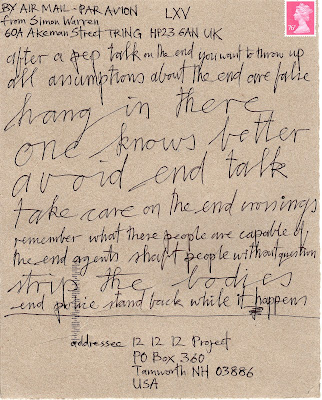 BY AIR MAIL - PAR AVION
from Simon Warren
60A Akeman Street TRING HP23 6AN UK
LXV
after a pep talk on the end you want to throw up
all assumptions about the end are false
hang in there
one knows better
avoid end talk
take care on the end crossings
remember what these people are capable of
the end agents shaft people without question
strip the bodies
end police stand back while it happens
addressee 12 12 12 Project
PO Box 360
Tamworth NH 03886
USA